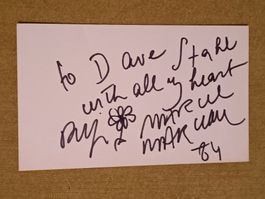 to Dave Stahl
with all my heart
Bip MARCEL
MARCEAU
84